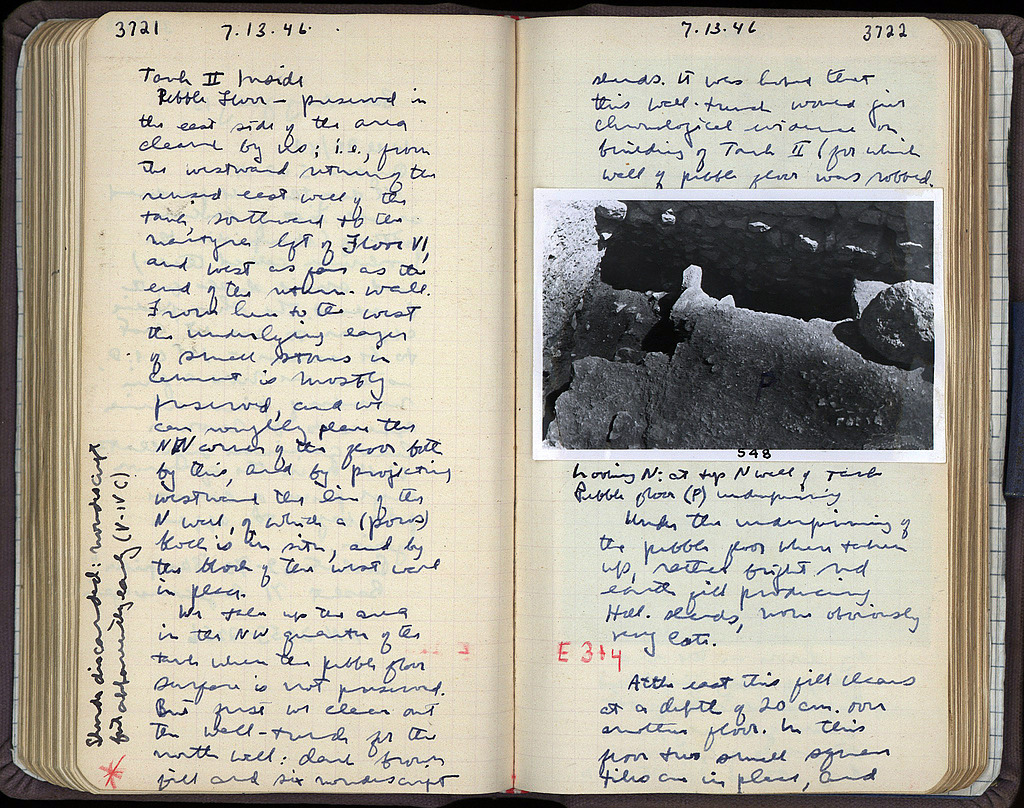 3721 7.13.46.
Tank II Inside
Pebble Floor — preserved in
the east side of the area
cleared by us; i.e., from
the westward returning the
revised east wall of the
tank, southward to the
left of Floor VI,
and west as far as the
end of the return-wall.
From here to the west
the underlying layer
of small stones in
cement is mostly
preserved, and we
can roughly place the
NW corner of the floor both
by this, and by projecting
westward the line of the
N wall, of which a (poros)
block is in situ, and by
the block of the west wall
in place.
We take up the area
in the NW quarter of the
tank where the pebble floor
surface is not preserved.
But first we clear out
the wall-trench for the
north wall: dark brown
fill and six nondescript
Sherds discarded: nondescript
but apparently early (V-IV C)
3722 7.13.46
sherds. It was hoped that
this wall-trench would give
chronological evidence on
building of Tank II (for which
wall of pebble floor was robbed.
P
548
Looking N: at top N wall of Tank
Pebble floor (P) underpinning
Under the underpinning of
the pebble floor where taken
up, rather bright red
earth fill producing
Hell. sherds, none obviously
very late.
E 3+4
At the east this fill clears
at a depth of 20 cm. over
another floor. In this
floor two small square
tiles are in place, and